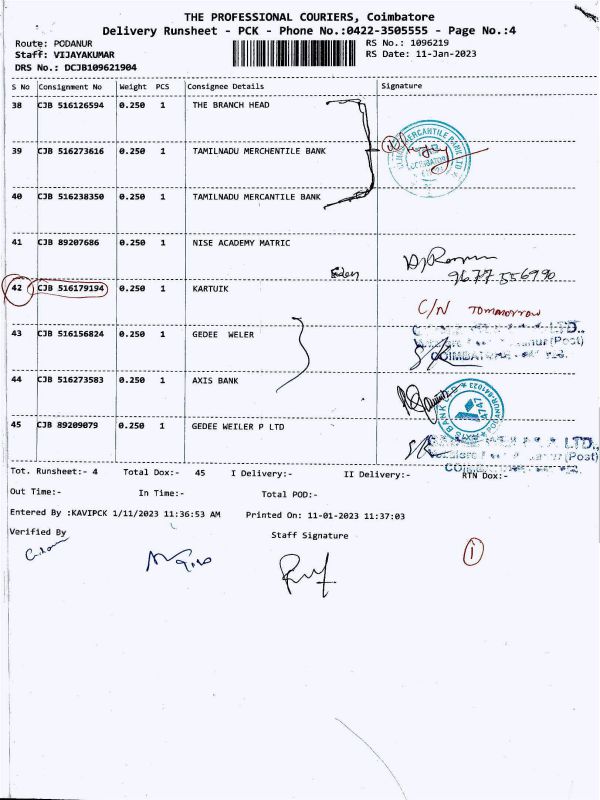 THE PROFESSIONAL COURIERS, Coimbatore
Delivery Runsheet - PCK - Phone No.:0422-3505555 - Page No.:4
Route: PODANUR RS No.: 1096219
Staff: VIJAYAKUMAR RS Date: 11-Jan-2023
DRS No.: DCJB109621904
S No Consignment No Weight PCS Consignee Details Signature
38 CJB 516126594 0.250 1 THE BRANCH HEAD
39 CJB 516273616 0.250 1 TAMILNADU MERCHENTILE BANK
MERCANTILE BANK LTD
COIMBATORE
40 CJB 516238350 0.250 1 TAMILNADU MERCANTILE BANK
41 CJB 89207686 0.250 1 NISE ACADEMY MATRIC
Eden
42 CJB 516179194 0.250 1 KARTUIK
C/N TOMORROW
43 CJB 516156824 0.250 1 GEDEE WELER
LTD.,
(Post)
44 CJB 516273583 0.250 1 AXIS BANK
45 CJB 89209079 0.250 1 GEDEE WEILER P LTD
LTD.,
(Post)
Tot. Runsheet:- 4 Total Dox:- 45 I Delivery:- II Delivery:- RTN Dox:-
Out Time:- In Time:- Total POD:-
Entered By :KAVIPCK 1/11/2023 11:36:53 AM Printed On: 11-01-2023 11:37:03
Verified By Staff Signature
1